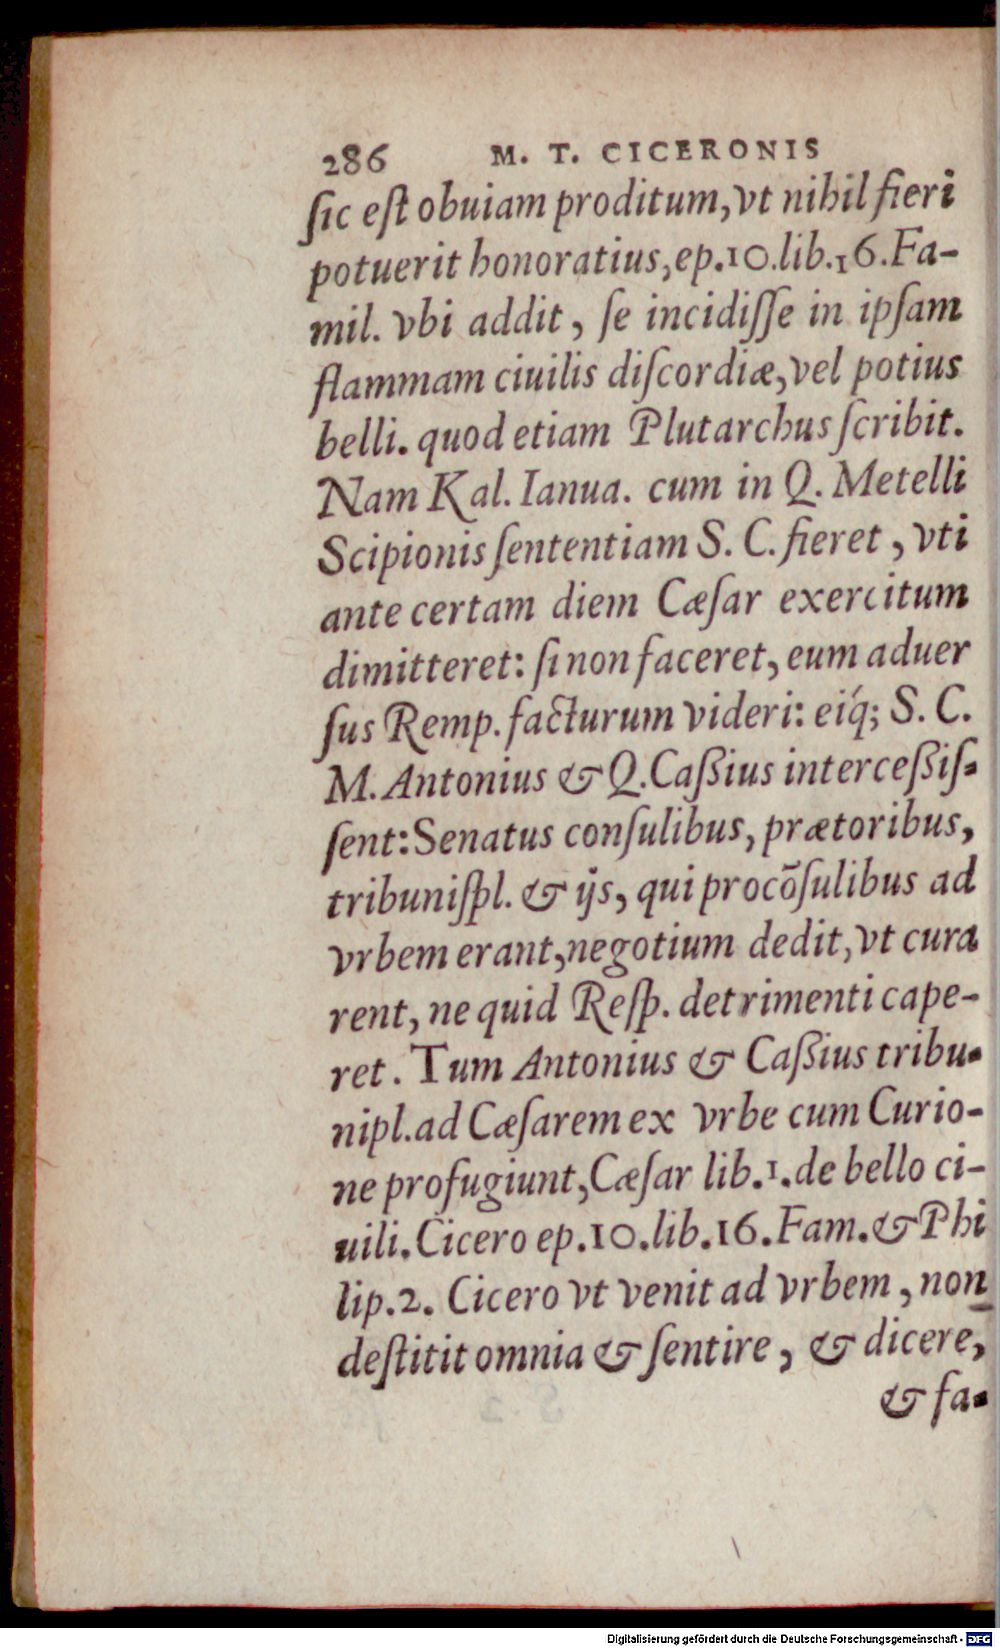 286 M. T. CICERONIS
ſic eſt obuiam proditum, vt nihil fieri
potuerit honoratius, ep.10.lib.16.Fa-
mil. vbi addit, ſe incidiſſe in ipſam
flammam ciuilis diſcordiæ, vel potius
belli. quod etiam Plutarchus ſcribit.
Nam Kal. Ianua. cum in Q. Metelli
Scipionis ſententiam S. C. fieret, vti
ante certam diem Cæſar exercitum
dimitteret: ſi non faceret, eum aduer
ſus Remp. facturum videri: eiq́; S. C.
M. Antonius & Q. Caßius interceßiſ-
ſent: Senatus conſulibus, prætoribus,
tribuniſpl. & ijs, qui procõſulibus ad
vrbem erant, negotium dedit, vt cura
rent, ne quid Reſp. detrimenti cape-
ret. Tum Antonius & Caßius tribu-
nipl. ad Cæſarem ex vrbe cum Curio-
ne profugiunt, Cæſar lib.1. de bello ci-
uili. Cicero ep.10.lib.16.Fam. & Phi
lip.2. Cicero vt venit ad vrbem, non
deſtitit omnia & ſentire, & dicere,
& fa-
Digitalisierung gefördert durch die Deutsche Forschungsgemeinschaft - DFG